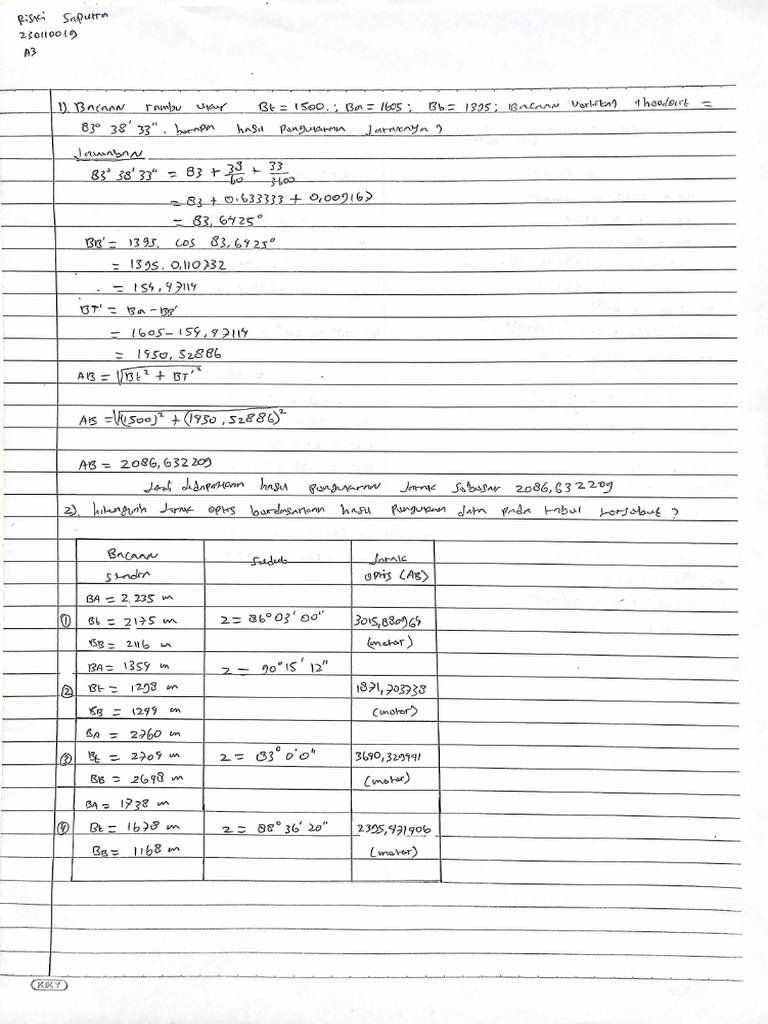 Riski Saputra
230110019
A3
1). Bacaan rambu ukur Bt = 1500.; Ba = 1605; Bb = 1395; Bacaan Vertikal theodorit =
83° 38' 33". berapa hasil Pengukuran Jaraknya?
Jawaban
83° 38' 33" = 83 + 38/60 + 33/3600
= 83 + 0.633333 + 0,009167
= 83,6425°
BB' = 1395. cos 83,6425°
= 1395. 0,110732
= 154,47114
BT' = Ba - BB'
= 1605 - 154,47114
= 1450,52886
AB = √Bt² + BT'²
AB = √(1500)² + (1450,52886)²
AB = 2086,632209
Jadi didapatkan hasil pengukuran Jarak Sebesar 2086,632209
2). hitunglah Jarak optis berdasarkan hasil Pengukuran data pada tabel tersebut?
Bacaan Sudut Jarak
optis (AB)
BA = 2,235 m
① Bt = 2175 m z = 86° 03' 00" 3015,880964
BB = 2116 m (meter)
BA = 1354 m z = 90° 15' 12"
② Bt = 1298 m 1871,703738
BB = 1244 m (meter)
BA = 2760 m
③ Bt = 2709 m z = 83° 0' 0" 3640,329941
BB = 2698 m (meter)
BA = 1738 m
④ Bt = 1678 m z = 88° 36' 20" 2395,471406
BB = 1168 m (meter)
KIKY